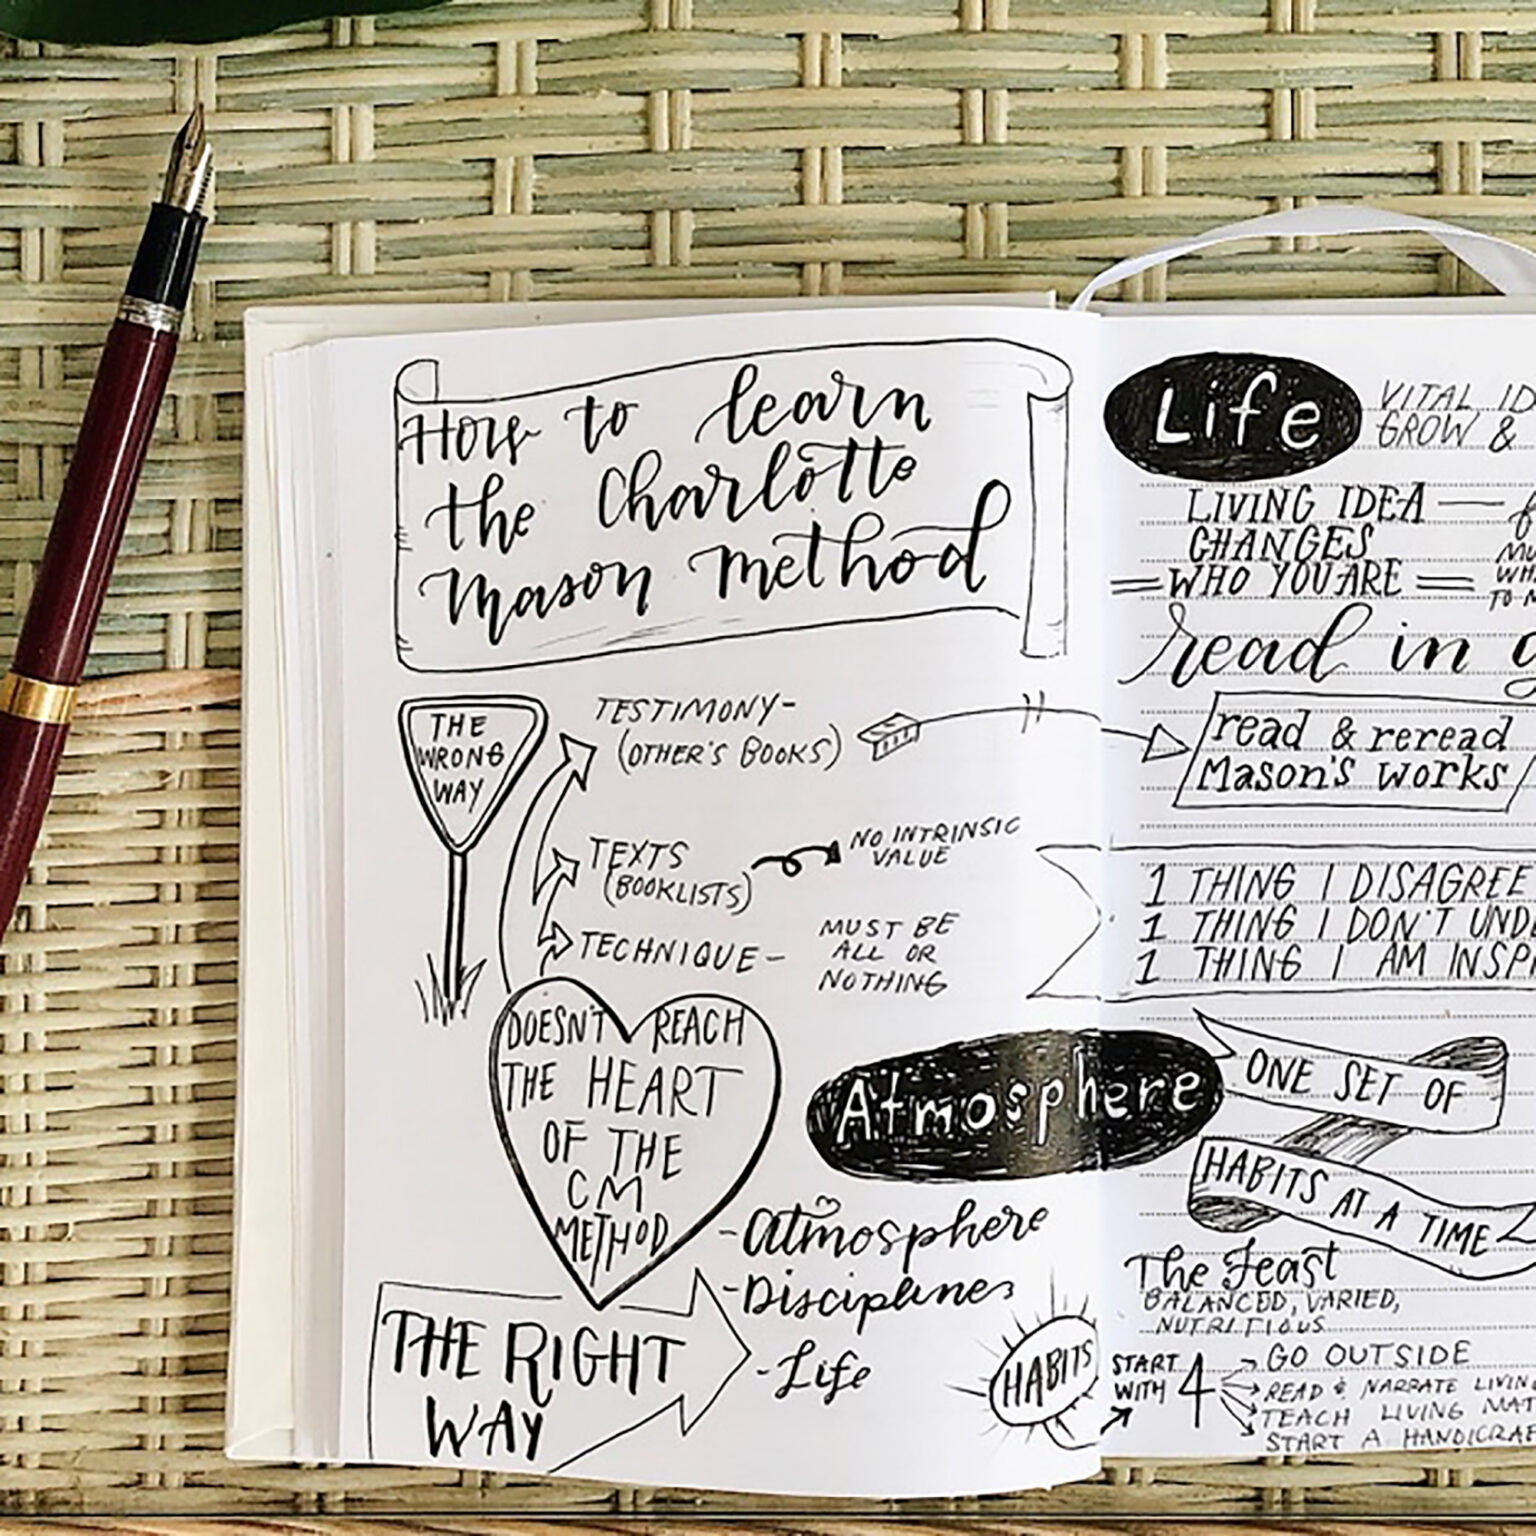 How to learn
the Charlotte
Mason method
THE
WRONG
WAY
TESTIMONY-
(OTHER'S BOOKS)
TEXTS
(BOOKLISTS)
NO INTRINSIC
VALUE
TECHNIQUE-
MUST BE
ALL OR
NOTHING
DOESN'T REACH
THE HEART
OF THE
CM
METHOD
THE RIGHT
WAY
-Atmosphere
-Discipline
-Life
Life
VITAL
GROW &
LIVING IDEA —
CHANGES
=WHO YOU ARE=
read in
read & reread
Mason's works
1 THING I DISAGREE
1 THING I DON'T
1 THING I AM
Atmosphere
ONE SET OF
HABITS AT A TIME
The Feast
BALANCED, VARIED,
NUTRITIOUS
HABITS
START
WITH 4
GO OUTSIDE
READ & NARRATE LIVING
TEACH LIVING
START A